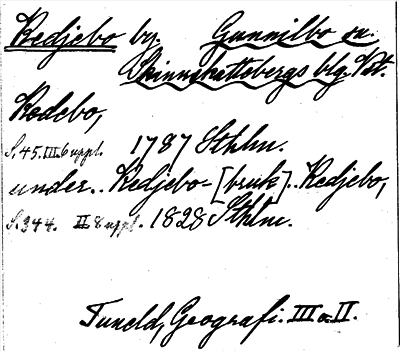 Kedjebo by. Gunnilbo sn.
Skinnskattebergs hlg. Vstm.
Kedebo,
S. 45. III. 6 uppl. 1787 Sthlm.
under.. Kedjebo-[bruk].. Kedjebo,
S. 344. II 8 uppl. 1828 Sthlm.
Tuneld, Geografi. III o. II.